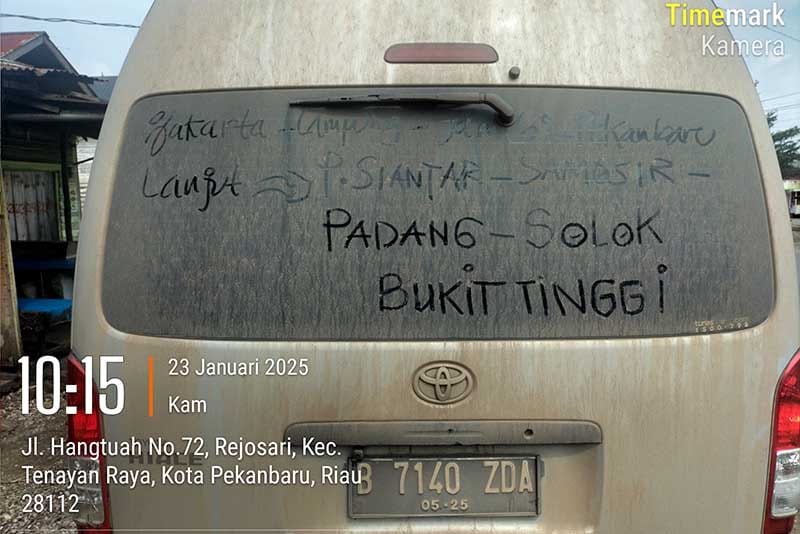 Timemark
Kamera
Jakarta - Lampung - Pekanbaru
Lanjut => P. SIANTAR - SAMOSIR -
PADANG - SOLOK
BUKIT TINGGI
10:15
23 Januari 2025
Kam
Jl. Hangtuah No.72, Rejosari, Kec.
Tenayan Raya, Kota Pekanbaru, Riau
28112
HIACE
B 7140 ZDA
05·25